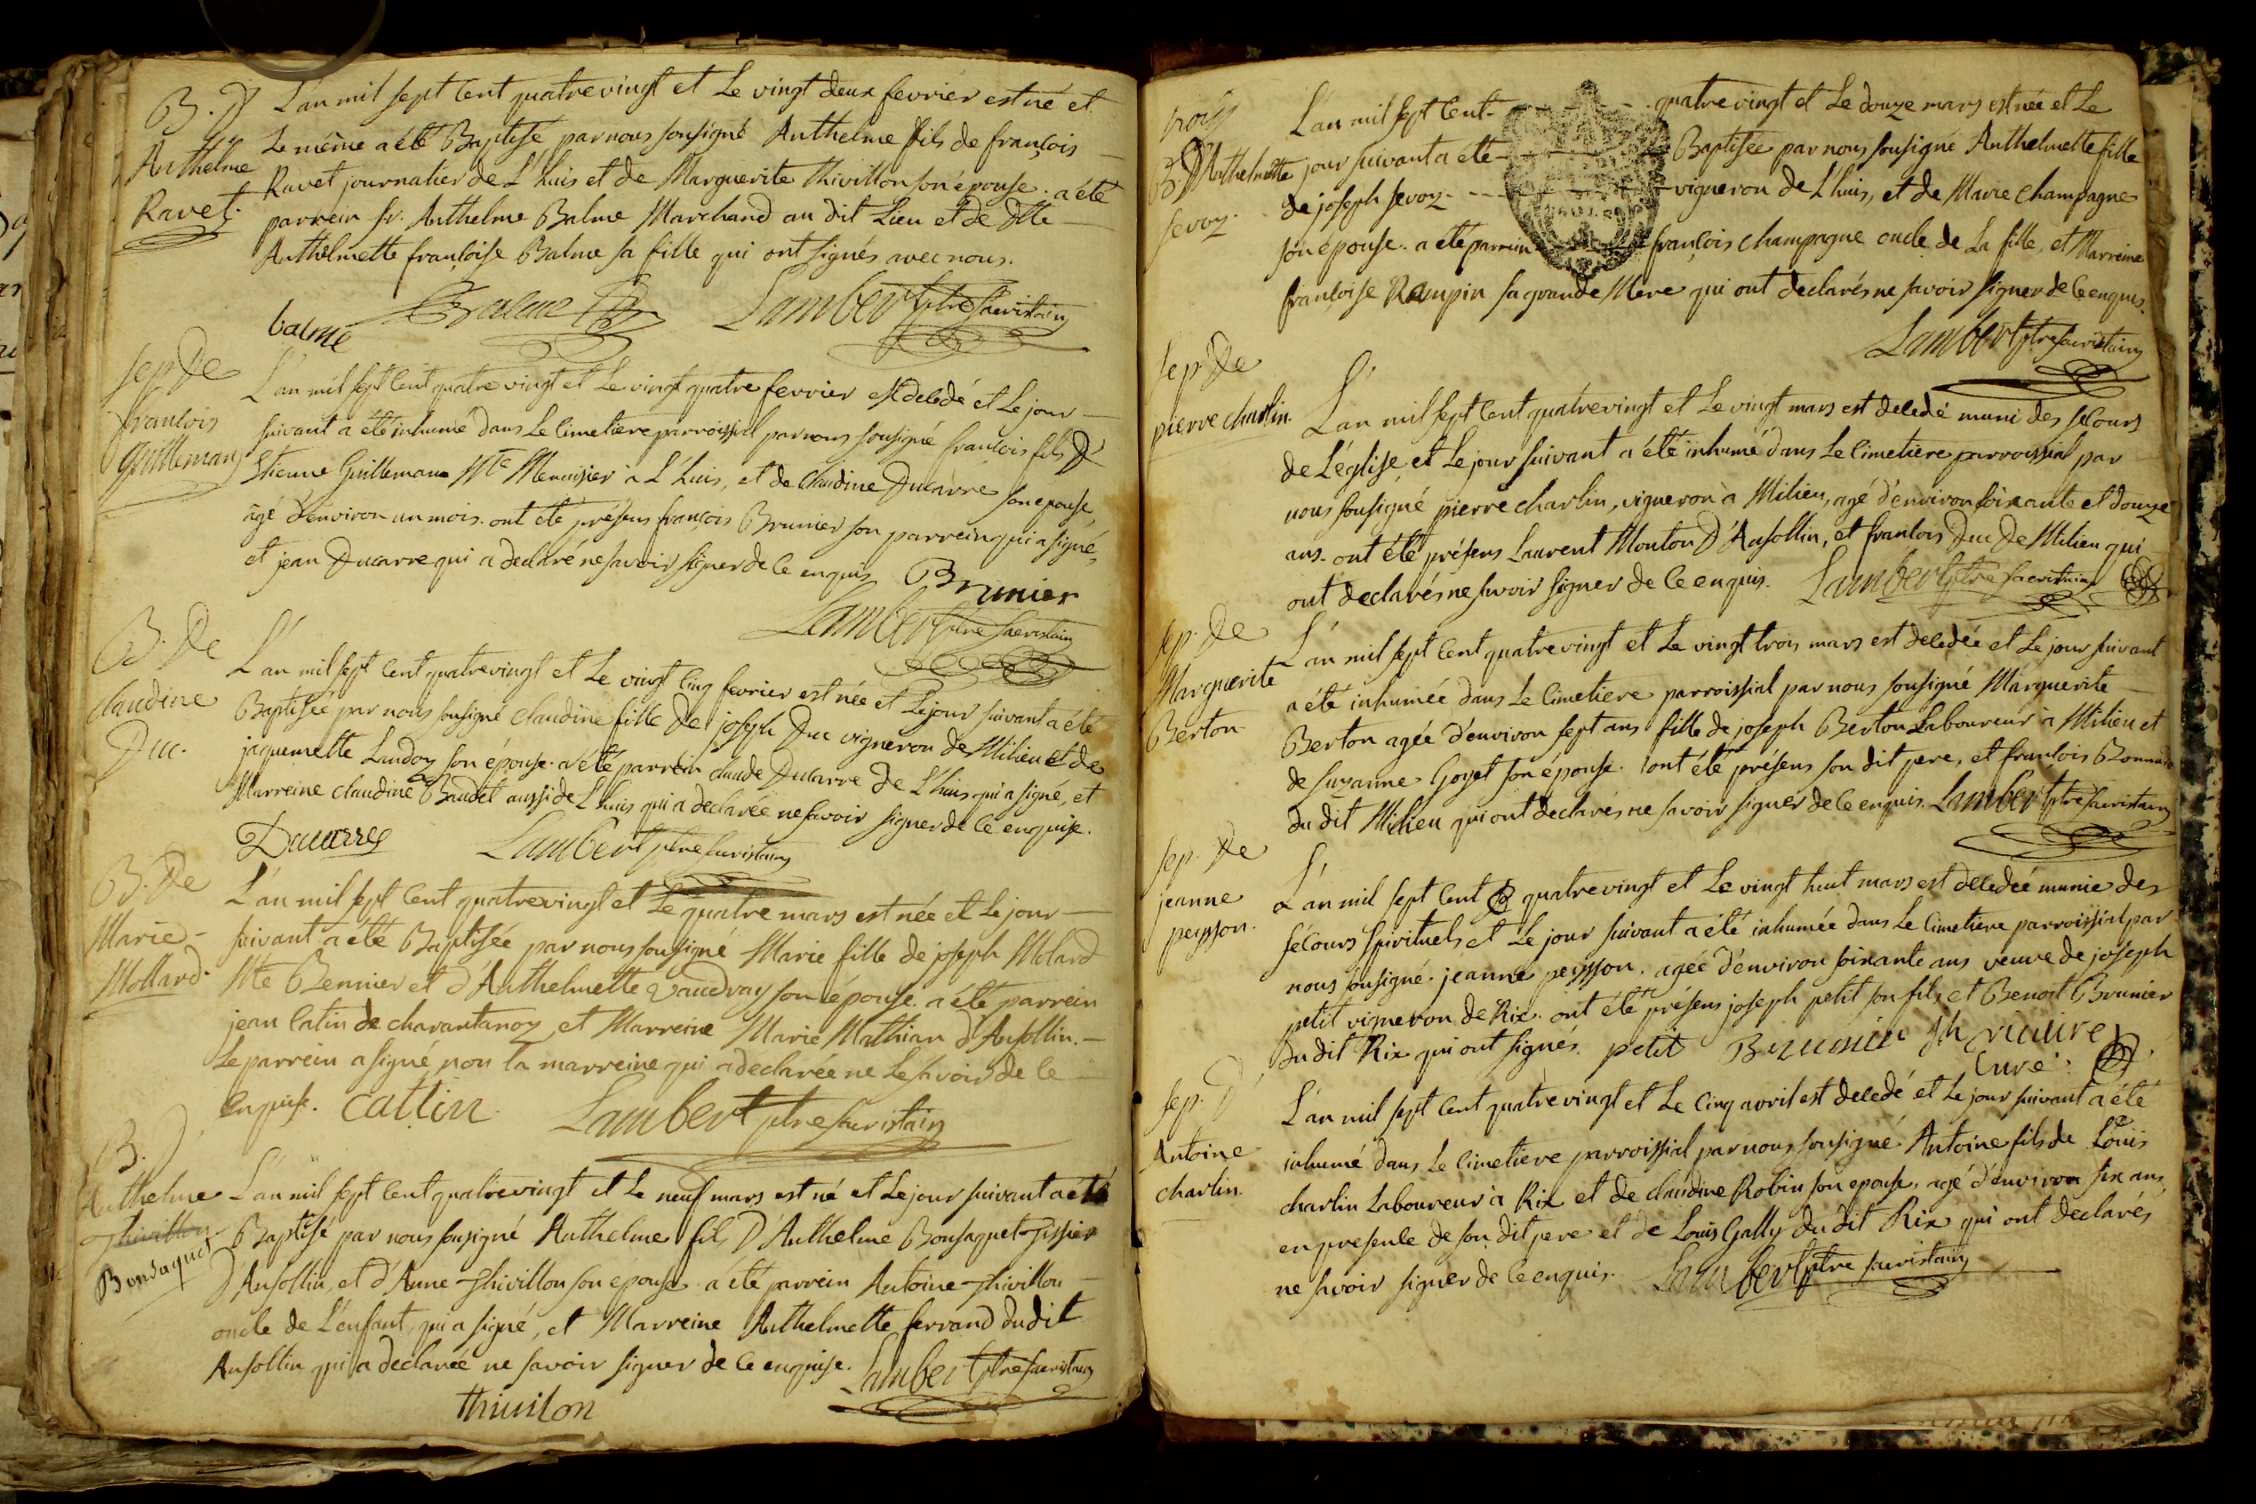 B. D'
Anthelme
Ravet.
L'an mil sept cent quatre vingt et Le vingt deux fevrier est né et
Le même a été Baptisé par nous sousigné Anthelme fils de françois
Ravet journalier de L'huis et de Marguerite Thivillon son épouse. a été
parrein sr. Anthelme Balme Marchand au dit Lieu et de dlle
Anthelmette françoise Balme sa fille qui ont signés avec nous.
balme Balme Lambert ptre sacristain
sep. De
francois
Guilleman
L'an mil sept cent quatre vingt et Le vingt quatre fevrier est decedé et Le jour
suivant a été inhumé dans Le Cimetiere parroissial par nous sousigné francois fils D'
Etienne Guilleman Mte Menuisier à L'huis, et de Claudine Ducarre son epouse
âgé d'environ un mois. ont été présens françois Brunier son parrein qui a signé,
et jean Ducarre qui a declaré ne savoir signer de ce enquis
Brunier
Lambert ptre sacristain
B. De
claudine
Duc.
L'an mil sept cent quatre vingt et Le vingt cinq fevrier est née et Le jour suivant a été
Baptisée par nous sousigné claudine fille de joseph Duc vigneron de Milieu et de
jaquemette Landoz son épouse. a été parrein claude Ducarre de L'huis qui a signé, et
Marreine claudine Baudet aussi de L'huis qui a declarée ne savoir signer de ce enquise.
Ducarres Lambert ptre sacristain
B. De
Marie
Mollard.
L'an mil sept cent quatre vingt et Le quatre mars est née et Le jour
suivant a été Baptisée par nous sousigné Marie fille de joseph Molard
Mte Bennier et d'Anthelmette Vaudray son épouse. a été parrein
jean Catin de charantanoz, et Marreine Marie Mathian d'Ansollin.
Le parrein a signé, non la marreine qui a declarée ne Le savoir de ce
enquise. Cattin Lambert ptre sacristain
B. D'
Anthelme
Thivillon
Bonsaquet
L'an mil sept cent quatre vingt et Le neuf mars est né et Le jour suivant a été
Baptisé par nous sousigné Anthelme fils D'Anthelme Bonsaquet Tissier
D'Ansollin, et d'Anne Thivillon son epouse. a été parrein Antoine Thivillon
oncle de L'enfant, qui a signé, et Marreine Anthelmette ferrand du dit
Ansollin qui a declarée ne savoir signer de ce enquise. Lambert ptre sacristain
thivilon
B. D'Anthelmette
sevoz.
L'an mil sept cent quatre vingt et Le douze mars est née et Le
jour suivant a été Baptisée par nous sousigné Anthelmette fille
de joseph sevoz vigneron de L'huis, et de Marie Champagne
son épouse. a été parrein françois champagne oncle de La fille, et Marreine
françoise Rampin sa grande Mere qui ont declarés ne savoir signer de ce enquis.
Lambert ptre sacristain
sep. De
pierre charlin.
L'an mil sept cent quatre vingt et Le vingt mars est decedé muni des secours
de L'église et Le jour suivant a été inhumé dans Le Cimetiere parroissial par
nous sousigné pierre charlin, vigneron à Milieu, agé d'environ soixante et douze
ans. ont été présens Laurent Mouton D'Ansollin, et francois Duc de Milieu qui
ont declarés ne savoir signer de ce enquis. Lambert ptre sacristain
sep. De
Marguerite
Berton
L'an mil sept cent quatre vingt et Le vingt trois mars est decedée et Le jour suivant
a été inhumée dans Le Cimetiere parroissial par nous sousigné Marguerite
Berton agée d'environ sept ans fille de joseph Berton Laboureur à Milieu et
de suzanne Goyet son épouse. ont été présens son dit pere, et francois
du dit Milieu qui ont declarés ne savoir signer de ce enquis. Lambert ptre sacristain
sep. De
jeanne
peysson.
L'an mil sept cent quatre vingt et Le vingt huit mars est decedée munie des
sécours spirituels et Le jour suivant a été inhumée dans Le Cimetiere parroissial par
nous sousigné. jeanne peysson. agée d'environ soixante ans veuve de joseph
petit vigneron de Rix. ont été présens joseph petit son fils, et Benoit Brunier
du dit Rix qui ont signés. petit Brunier
Curé.
Sep. D'
Antoine
charlin.
L'an mil sept cent quatre vingt et Le cinq avril est decedé et Le jour suivant a été
inhumé dans Le Cimetiere parroissial par nous sousigné Antoine fils de Louis
charlin Laboureur à Rix et de claudine Robin son epouse, agé d'environ six ans,
en presence de son dit pere et de Louis Gally du dit Rix qui ont declarés
ne savoir signer de ce enquis. Lambert ptre sacristain